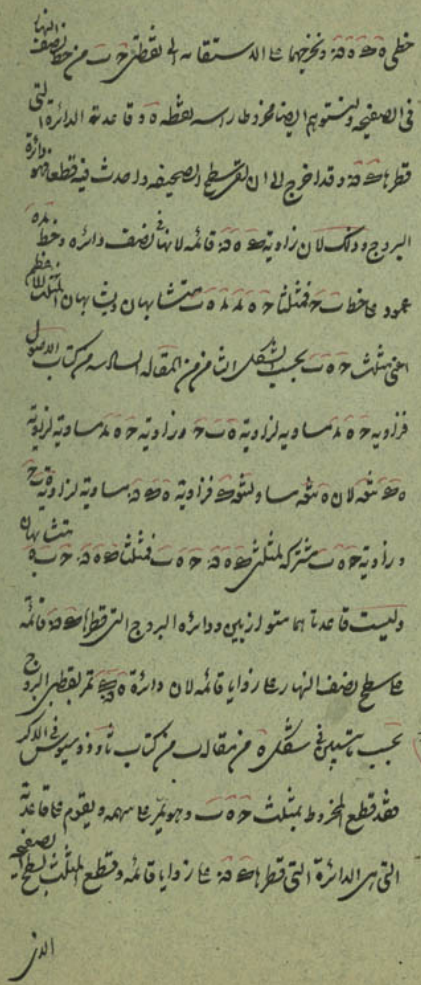 خطى ه ط ه ق ونخرجهما على الاستقامه الى نقطتى ح ب من خط نصف النهار
فى الصفيحه ولنتوهم ايضا مخروطا راسه نقطه ه وقاعدته الدائرة التى
قطرها ط ق وقد اخرج الى ان لقى سطح الصحيفه واحدث فيه قطعا فهو دائرة
البروج وذلك لان زاوية ط ه ق قائمه لانها فى نصف دائره وخط
عمود على خط ب ح فمثلثا متشابهان ويشابهان المثلث الاعظم
اعنى مثلث ح ه ب بحسب الشكل الثامن من المقاله السادسه من كتاب الاصول
فزاويه مساويه لزاوية ه ب ح وزاويه مساوية لزاوية
لان مساو فزاوية مساوية لزاوية
وزاوية ح ه ب مشتركه لمثلثى ط ه ق ح ه ب فمثلثا ط ه ق ح ه ب متشابهان
وليست قاعدتاهما متوازيين ودائره البروج التى قطرها ط ق قائمة
على سطح نصف النهار على زوايا قائمه لان دائرة تمر بقطبى البروج
بحسب ما تبين فى شكل ه من مقاله ب من كتاب ثاوذوسيوس فى الاكر
فقد قطع المخروط بمثلث ح ه ب وهو يمر على سهمه ويقوم على قاعدته
التى هى الدائرة التى قطرها ط ق على زوايا قائمه وقطع المثلث بسطح الصفيحه
الذى